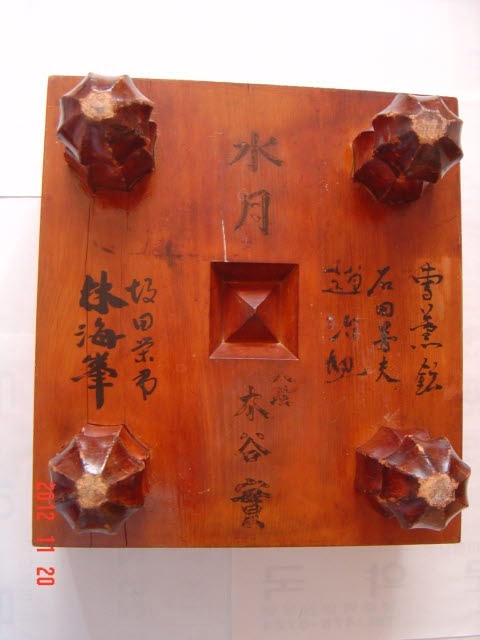 水月
曺薫鉉
石田芳夫
趙治勲
八段
木谷實
坂田栄男
林海峯
2012 11 20